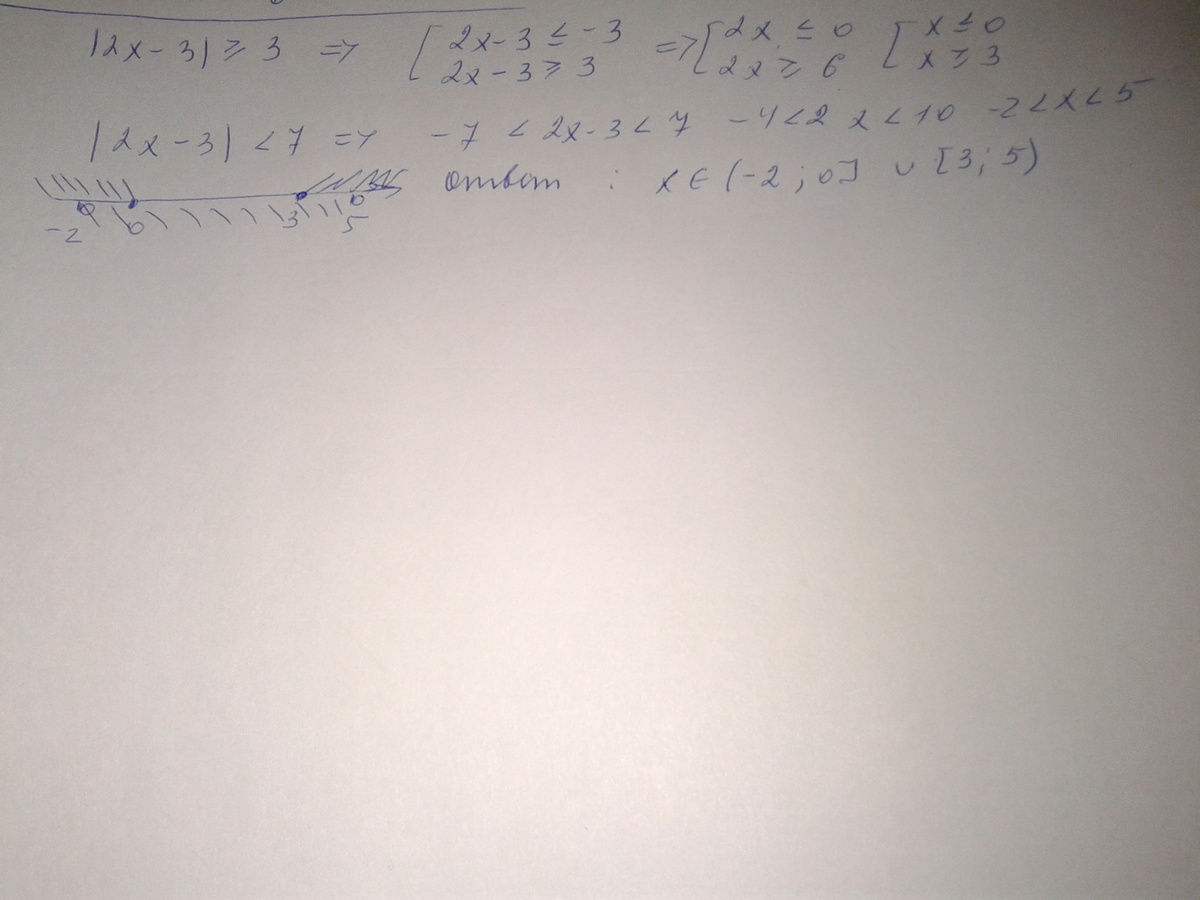 |2x-3| ≥ 3 => [ 2x-3 ≤ -3 => [ 2x ≤ 0 [ x ≤ 0
2x-3 ≥ 3 2x ≥ 6 x ≥ 3
|2x-3| < 7 => -7 < 2x-3 < 7 -4 < 2x < 10 -2 < x < 5
ответ : x ∈ (-2 ; 0] ∪ [3 ; 5)
-2 0 3 5